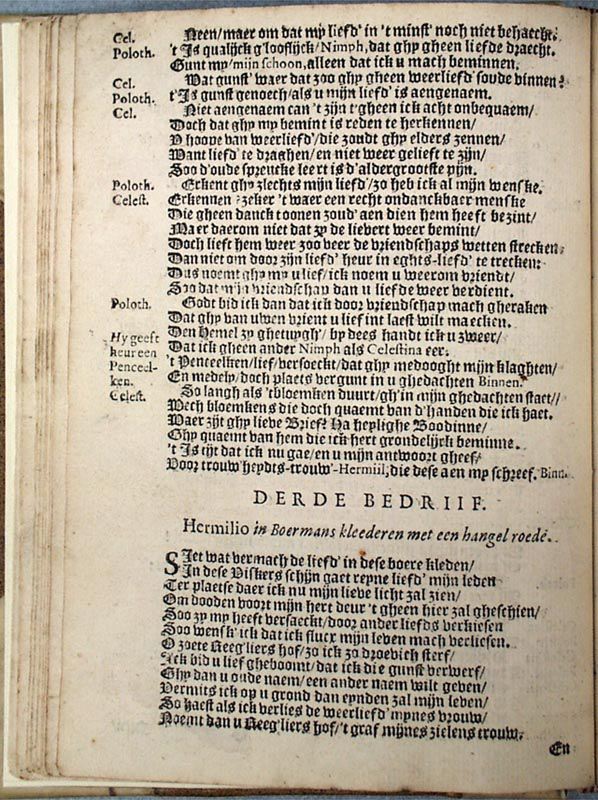 Cel. Neen/maer om dat my liefd' in 't minst noch niet behaecht.
Poloth. 't Is qualijck g'looflijck/Nimph, dat ghy gheen liefde draecht.
Gunt my/mijn schoon, alleen dat ick u mach beminnen.
Cel. Wat gunst' waer dat zoo ghy gheen weerliefd' soude vinnen?
Poloth. t'Is gunst genoech/als u mijn liefd' is aengenaem.
Cel. Niet aengenaem can 't zijn t'gheen ick acht onbequaem/
Doch dat ghy my bemint is reden te herkennen/
V hoope van weerliefd'/die zoudt ghy elders zennen/
Want liefd' te draghen/en niet weer gelieft te zijn/
Soo d'oude spreucke leert is d'aldergrootste pijn.
Poloth. Erkent ghy slechts mijn liefd'/zo heb ick al mijn wenske.
Celest. Erkennen? zeker 't waer een recht ondanckbaer menske
Die gheen danck toonen zoud' aen dien hem heeft bezint/
Maer daerom niet dat zy de lievert weer bemint/
Doch lieft hem weer zoo veer de vriendschaps wetten strecken;
Dan niet om door zijn liefd' heur in eghts-liefd' te trecken:
Dus noemt ghy my u lief/ick noem u weerom vriendt/
Soo dat mijn vriendschap dan u liefde weer verdient.
Poloth. Godt bid ick dan dat ick door vriendschap mach gheraken
Dat ghy van uwen vrient u lief int laest wilt maecken.
Den Hemel zy ghetuygh'/by dees handt ick u zweer/
Hy geeft heur een Penceel-ken. Dat ick gheen ander Nimph als Celestina eer.
't Penteelken/lief/versoeckt/dat ghy medooght mijn klaghten/
En medely/doch plaets vergunt in u ghedachten Binnen.
Celest. So langh als 'tbloemken duurt/gh'in mijn ghedachten staet//
Wech bloemkens die doch quaemt van d'handen die ick haet.
Waer zijt ghy lieve Brief? Ha heylighe Boodinne/
Ghy quaemt van hem die ick hert grondelijck beminne.
't Is tijt dat ick nu gae/en u mijn antwoort gheef/
Voor trouw heydts-trouw'-Hermiil, die dese aen my schreef. Binn.
DERDE BEDRIIF.
Hermilio in Boermans kleederen met een hangel roede.
SIet wat vermach de liefd' in dese boere kleden/
In dese Viskers schijn gaet reyne liefd' mijn leden
Ter plaetse daer ick nu mijn lieve licht zal zien/
Om dooden voort mijn hert deur 't gheen hier zal gheschien/
Soo zy my heeft versaeckt/door ander liefds verkiesen
Soo wensk' ick dat ick flucx mijn leven mach verliesen.
O zoete Reeg'liers hof/zo ick zo droevich sterf/
Ick bid u lief gheboomt/dat ick die gunst verwerf/
Ghy dan u oude naem/een ander naem wilt geven/
Vermits ick op u grond dan eynden zal mijn leven/
So haest als ick verlies de weerliefd' mynes vrouw/
Noemt dan u Reeg'liers hof/'t graf mijnes zielens trouw.
En